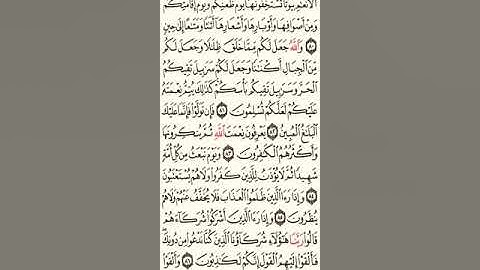 الْأَنْعَامِ بُيُوتًا تَسْتَخِفُّونَهَا يَوْمَ ظَعْنِكُمْ وَيَوْمَ إِقَامَتِكُمْ
وَمِنْ أَصْوَافِهَا وَأَوْبَارِهَا وَأَشْعَارِهَا أَثَاثًا وَمَتَاعًا إِلَىٰ حِينٍ
٨٠ وَاللَّهُ جَعَلَ لَكُم مِّمَّا خَلَقَ ظِلَالًا وَجَعَلَ لَكُم
مِّنَ الْجِبَالِ أَكْنَانًا وَجَعَلَ لَكُمْ سَرَابِيلَ تَقِيكُمُ
الْحَرَّ وَسَرَابِيلَ تَقِيكُم بَأْسَكُمْ كَذَٰلِكَ يُتِمُّ نِعْمَتَهُ
عَلَيْكُمْ لَعَلَّكُمْ تُسْلِمُونَ ٨١ فَإِن تَوَلَّوْا فَإِنَّمَا عَلَيْكَ
الْبَلَاغُ الْمُبِينُ ٨٢ يَعْرِفُونَ نِعْمَتَ اللَّهِ ثُمَّ يُنكِرُونَهَا
وَأَكْثَرُهُمُ الْكَافِرُونَ ٨٣ وَيَوْمَ نَبْعَثُ مِن كُلِّ أُمَّةٍ
شَهِيدًا ثُمَّ لَا يُؤْذَنُ لِلَّذِينَ كَفَرُوا وَلَا هُمْ يُسْتَعْتَبُونَ
٨٤ وَإِذَا رَأَى الَّذِينَ ظَلَمُوا الْعَذَابَ فَلَا يُخَفَّفُ عَنْهُمْ وَلَا هُمْ
يُنظَرُونَ ٨٥ وَإِذَا رَأَى الَّذِينَ أَشْرَكُوا شُرَكَاءَهُمْ
قَالُوا رَبَّنَا هَٰؤُلَاءِ شُرَكَاؤُنَا الَّذِينَ كُنَّا نَدْعُو مِن دُونِكَ
فَأَلْقَوْا إِلَيْهِمُ الْقَوْلَ إِنَّكُمْ لَكَاذِبُونَ ٨٦ وَأَلْقَوْا